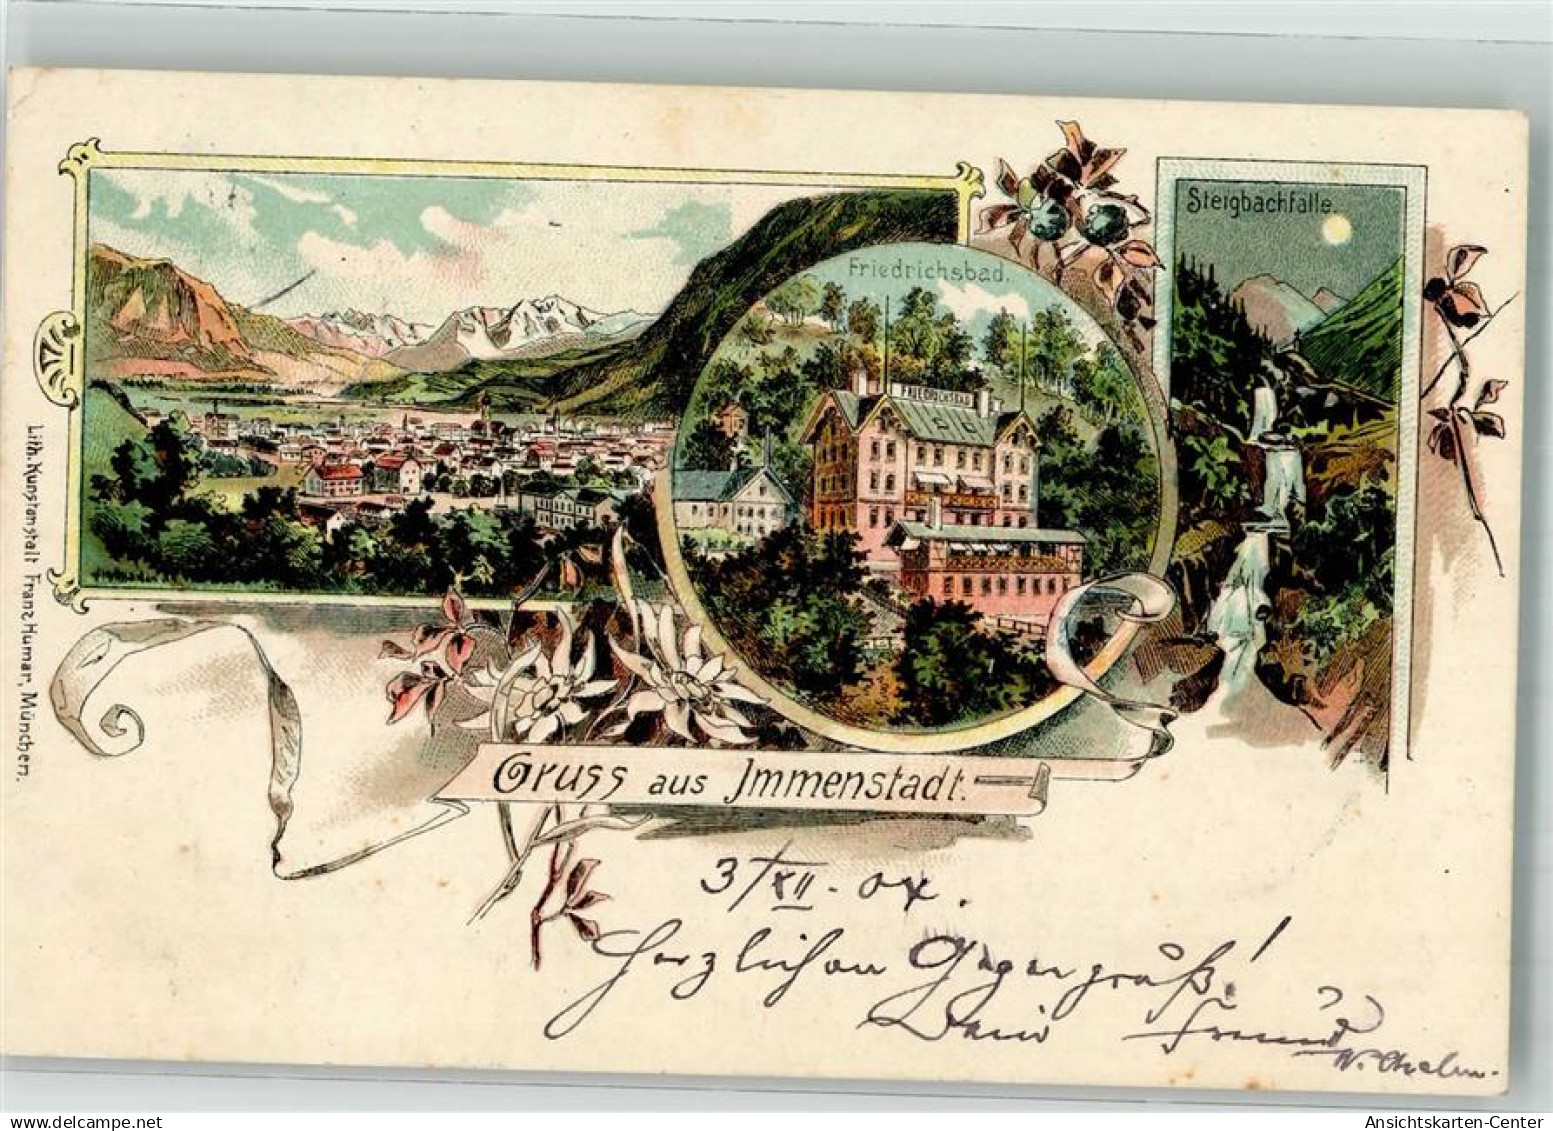 Steigbachfälle.
Friedrichsbad.
FRIEDRICHSBAD
Lith. Kunstanstalt Franz Humar, München.
Gruss aus Immenstadt.
3/XII. 04.
Herzlichen Gegengruß!
Dein Freund
Ansichtskarten-Center